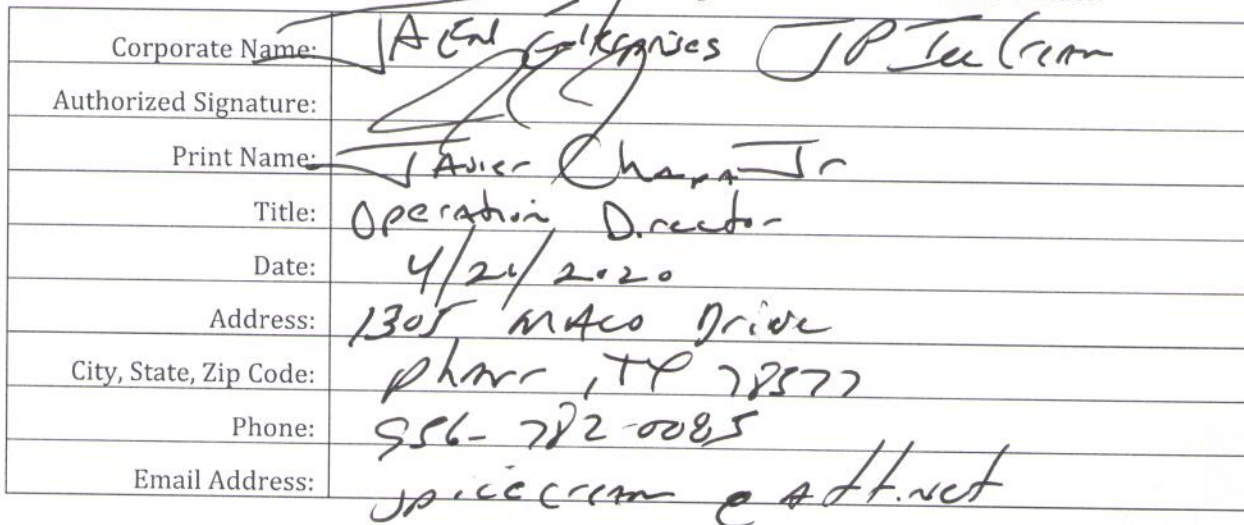 Corporate Name: Enterprises JP Ice Cream
Authorized Signature:
Print Name: Javier Chapa Jr
Title: Operation Director
Date: 4/21/2020
Address: 1305 MACO Drive
City, State, Zip Code: Pharr, TX 78577
Phone: 956-782-0085
Email Address: jpicecream@att.net